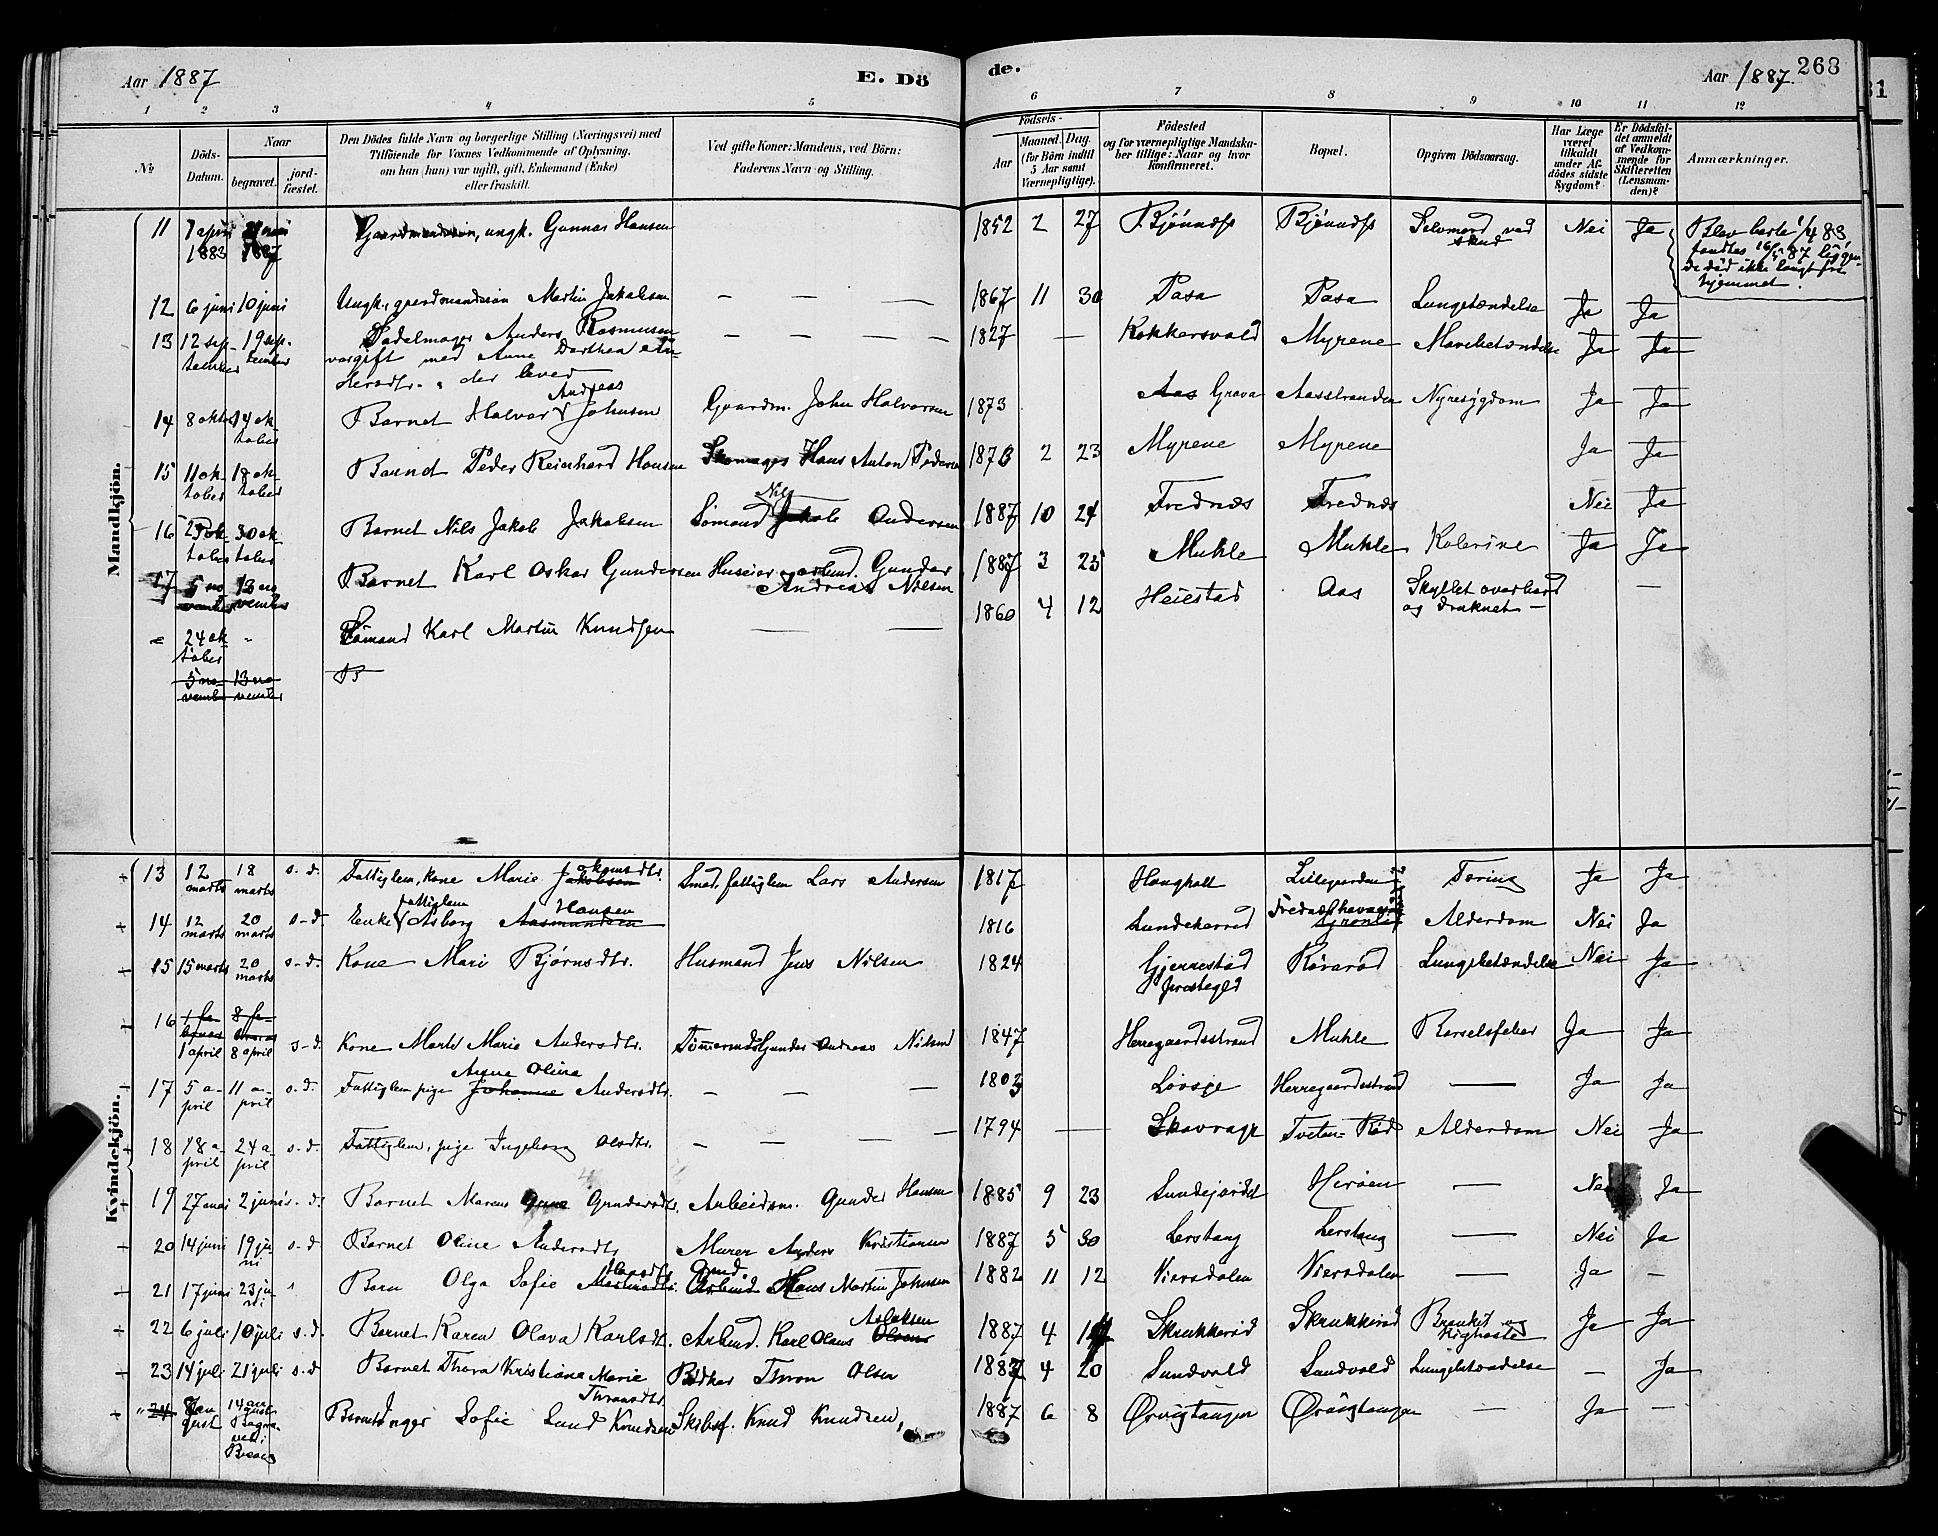 Aar 1887
E. Dö
de.
Aar 1887.
268
1 2 3 4 5 6 7 8 9 10 11 12
No
Döds-Datum.
Naar
begravet.
jord-fæstet.
Den Dödes fulde Navn og borgerlige Stilling (Næringsvei) med
Tilföiende for Voxnes Vedkommende af Oplysning,
om han (hun) var ugift, gift, Enkemand (Enke)
eller fraskilt.
Ved gifte Koner: Mandens, ved Börn:
Faderens Navn og Stilling.
Födsels-
Aar
Maaned. Dag.
(for Börn indtil
5 Aar samt
Værnepligtige).
Födested
og for værnepligtige Mandska-
ber tillige: Naar og hvor
konfirmeret.
Bopæl.
Opgiven Dödsaarsag.
Har Læge
været
tilkaldt
under Af-
dödes sidste
Sygdom?
Er Dödsfal-
det anmeldt
af Vedkom-
mende for
Skifteretten
(Lensman-
den)?
Anmærkninger.
Mandkjön.
11 7 april 1883 1887 Gaardmandssön, ungk. Gunnar Hansen 1852 2 27 Bjönnäs Bjönnäs Selvmord ved skud Nei Ja Blev borte 1/4 83
fandtes 16/5 87 liggen-
de död ikke langt fra
hjemmet.
12 6 juni 10 juni Ungk., gaardmandssön Martin Jakobsen — — — 1867 11 30 Pasa Pasa Lungebetændelse Ja Ja
13 12 september 19 september Sadelmager Anders Rasmussen — — — 1827 — Kokkersvold Myrene Mavebetændelse Ja Ja
var gift med Anne Dorthea
der lever
14 8 oktober 14 oktober Barnet Halvor Andreas Johnsen Gaardm. John Halvorsen 1873 Aas Grava Aasstranden Nyresygdom Ja Ja
15 11 oktober 18 oktober Barnet Peder Reinhard Hansen Skomager Hans Anton Pedersen 1873 2 23 Myrene Myrene Ja Ja
16 25 oktober 30 oktober Barnet Nils Jakob Jakobsen Sömand Jakob Nils Andersen 1887 10 24 Frednæs Frednæs Nei Ja
17 5 november 13 november Barnet Karl Oskar Gundersen Huseier arbeid. Gunder Andreas Nilsen 1887 3 25 Muhle Muhle Kolerine Ja Ja
24 oktober " Sömand Karl Martin Knudsen — — 1860 4 12 Heiestad Aas Skyllet overbord og druknet — —
5 november 13 november B
Kvindekjön.
13 12 marts 18 marts s. d. Fattiglem, kone Marie Jakobsen Smed, fattiglem Lars Andersen 1817 Haugholt Lillegaarden Tæring Ja Ja
14 12 marts 20 marts s. d. Enke fattiglem Asborg Aasmundsen Hansen 1816 Lundekerred Alderdom Nei Ja
15 15 marts 20 marts s. d. Kone Mari Bjørnsdtr. Husmand Jens Nilsen 1824 Gjerrestad præstegjd Röraröd Lungebetændelse Nei Ja
16 1 april 8 april s. d. Kone Marte Marie Andersdtr. Tömmermd Gunder Andreas Nilsen 1847 Herregaardsstrand Muhle Barselsfeber Ja Ja
17 5 april 11 april s. d. Fattiglem pige Johanne Anne Oline Andersdtr. — — — 1803 Lövsje Herregaardsstrand — Ja Ja
18 18 april 24 april s. d. Fattiglem, pige Ingeborg Olsdtr. — — — 1794 — Skavrage Tveten-Röd Alderdom Nei Ja
19 27 mai 2 juni s. d. Barnet Maren Gundersdtr. Arbeidsm. Gunder Hansen 1885 9 23 Lundejordet Heröen — Nei Ja
20 14 juni 19 juni s. d. Barnet Oline Andersdtr. Murer Anders Kristiansen 1887 5 30 Lerstang Lerstang — Nei Ja
21 17 juni 23 juni Barn Olga Sofie Martinsdtr. Hansdtr. Arbeid. Hans Martin Johnsen 1882 11 12 Viersdalen Viersdalen — Ja —
22 6 juli 10 juli s. d. Barnet Karen Olava Karlsdt. Arbmd. Karl Olaus Olsens Aslaksen 1887 4 14 Skrukkeröd Skrukkeröd Bronkit og kighoste Ja Ja
23 14 juli 21 juli s. d. Barnet Thora Kristiane Marie Thronsdtr. Bödker Thron Olsen 1887 4 20 Sundvold Sundvold Lungebetændelse — Ja
24 8 august 14 august Begravet i Brevig Barnet Inger Sofie Lund Knudsen Skibsf. Knud Knudsen, 1887 6 8 Ørvigtangen Ørvigtangen — Ja —